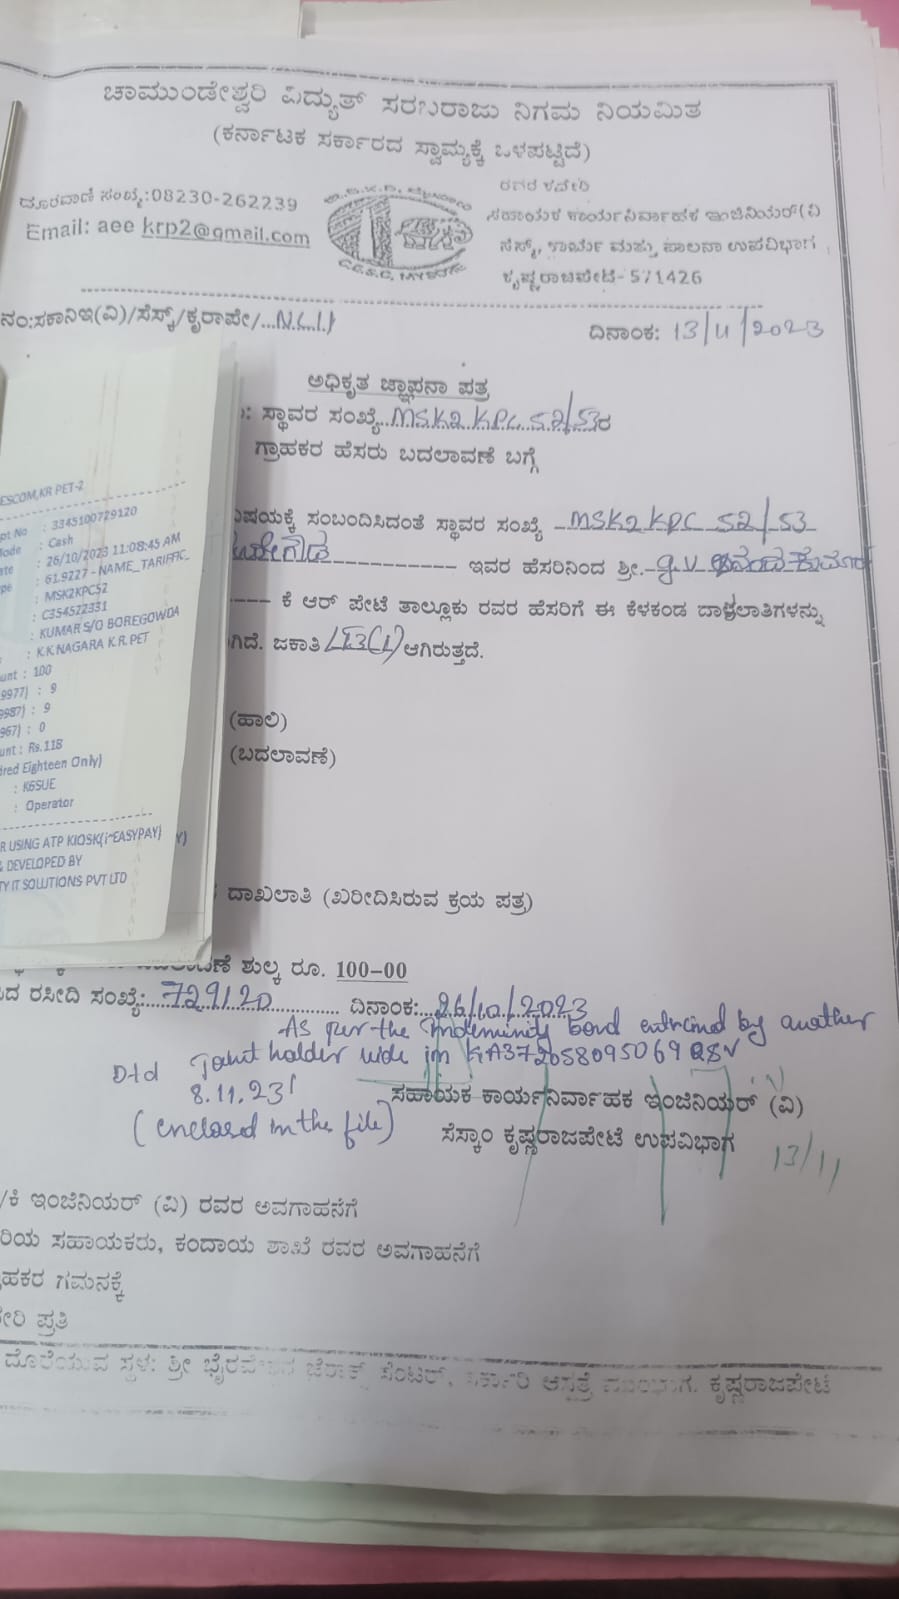 ಚಾಮುಂಡೇಶ್ವರಿ ವಿದ್ಯುತ್ ಸರಬರಾಜು ನಿಗಮ ನಿಯಮಿತ
(ಕರ್ನಾಟಕ ಸರ್ಕಾರದ ಸ್ವಾಮ್ಯಕ್ಕೆ ಒಳಪಟ್ಟಿದೆ)
ದೂರವಾಣಿ ಸಂಖ್ಯೆ:08230-262239
Email: aee krp2@gmail.com
ರವರ ಕಛೇರಿ
ಸಹಾಯಕ ಕಾರ್ಯನಿರ್ವಾಹಕ ಇಂಜಿನಿಯರ್(ವಿ
ಸೆಸ್ಕ್, ಕಾರ್ಯ ಮತ್ತು ಪಾಲನಾ ಉಪವಿಭಾಗ
ಕೃಷ್ಣರಾಜಪೇಟೆ- 571426
ನಂ:ಸಕಾನಿಇ(ವಿ)/ಸೆಸ್ಕ್/ಕೃರಾಪೇ/
ದಿನಾಂಕ: 13/11/2023
ಅಧಿಕೃತ ಜ್ಞಾಪನಾ ಪತ್ರ
: ಸ್ಥಾವರ ಸಂಖ್ಯೆ MSK2 KPC 52/53ರ
ಗ್ರಾಹಕರ ಹೆಸರು ಬದಲಾವಣೆ ಬಗ್ಗೆ
ವಿಷಯಕ್ಕೆ ಸಂಬಂದಿಸಿದಂತೆ ಸ್ಥಾವರ ಸಂಖ್ಯೆ MSK2 KPC 52/53
ಇವರ ಹೆಸರಿನಿಂದ ಶ್ರೀ.
ಕೆ ಆರ್ ಪೇಟೆ ತಾಲ್ಲೂಕು ರವರ ಹೆಸರಿಗೆ ಈ ಕೆಳಕಂಡ ದಾಖಲಾತಿಗಳನ್ನು
ಗಿದೆ. ಜಕಾತಿ ಆಗಿರುತ್ತದೆ.
(ಹಾಲಿ)
(ಬದಲಾವಣೆ)
ದಾಖಲಾತಿ (ಖರೀದಿಸಿರುವ ಕ್ರಯ ಪತ್ರ)
ESCOM,KR PET-2
pt No : 3345100729120
ode : Cash
ate : 26/10/2023 11:08:45 AM
pe : 61.9227 - NAME_TARIFFIC_
: MSK2KPC52
: C354572331
: KUMAR S/O BOREGOWDA
: K.K.NAGARA K.R.PET
unt : 100
9977) : 9
9987) : 9
967) : 0
unt : Rs.118
dred Eighteen Only)
: K6SUE
: Operator
R USING ATP KIOSK(i~EASYPAY)
& DEVELOPED BY
TY IT SOLUTIONS PVT LTD
ಶುಲ್ಕ ರೂ. 100-00
ದ ರಸೀದಿ ಸಂಖ್ಯೆ: 729120 ದಿನಾಂಕ: 26/10/2023
As per the Indeminity bond by another
Joint holder vide
Dtd 8.11.23
(enclosed in the file)
ಸಹಾಯಕ ಕಾರ್ಯನಿರ್ವಾಹಕ ಇಂಜಿನಿಯರ್ (ವಿ)
ಸೆಸ್ಕಾಂ ಕೃಷ್ಣರಾಜಪೇಟೆ ಉಪವಿಭಾಗ
13/11
/ಕಿ ಇಂಜಿನಿಯರ್ (ವಿ) ರವರ ಅವಗಾಹನೆಗೆ
ರಿಯ ಸಹಾಯಕರು, ಕಂದಾಯ ಶಾಖೆ ರವರ ಅವಗಾಹನೆಗೆ
ಹಕರ ಗಮನಕ್ಕೆ
ೇರಿ ಪ್ರತಿ
ದೊರೆಯುವ ಸ್ಥಳ: ಶ್ರೀ ಜೆರಾಕ್ಸ್ ಸೆಂಟರ್, ಸರ್ಕಾರಿ ಆಸ್ಪತ್ರೆ ಕೃಷ್ಣರಾಜಪೇಟೆ